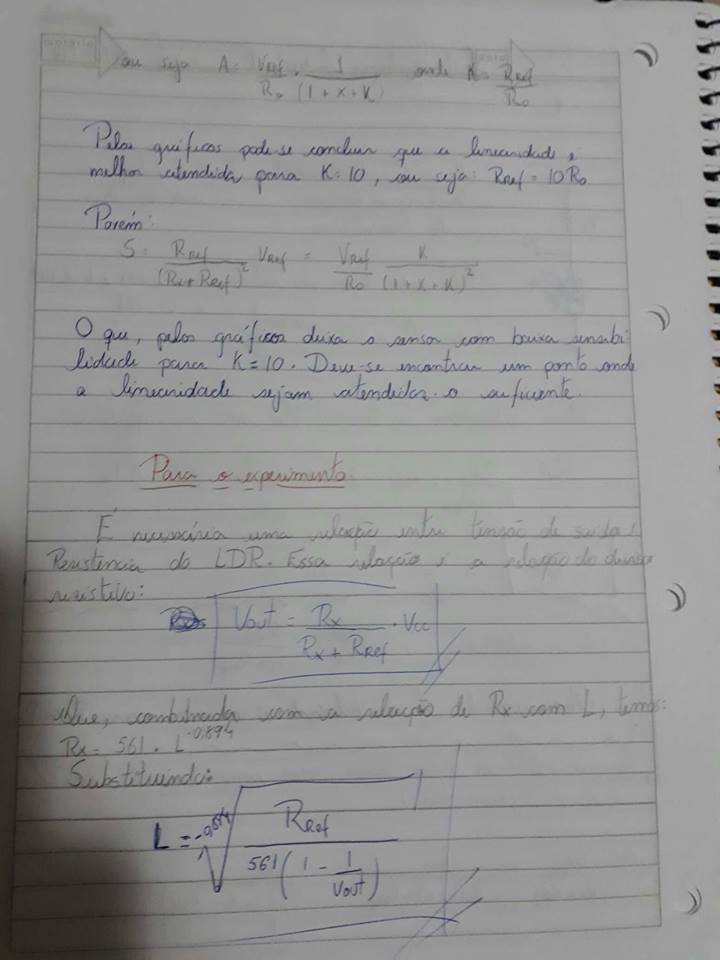 ou seja A = Vref/Ro · 1/(1 + x + K) onde K = Rref/Ro
Pelos gráficos pode-se concluir que a linearidade é
melhor atendida para K = 10, ou seja: Rref = 10Ro
Porém:
S = Rref/(Rx + Rref)² Vref = Vref/Ro K/(1 + x + K)²
O que, pelos gráficos deixa o sensor com baixa sensibi
lidade para K = 10. Deve-se encontrar um ponto onde
a linearidade sejam atendidas o suficiente.
Para o experimento.
É necessária uma relação entre tensão de saída
Resistencia do LDR. Essa relação é a relação do divisor
resistivo:
Vout = Rx/(Rx + Rref) · Vcc
Que, combinada com a relação de Rx com L, temos:
Rx = 561 · L^-0,894
Substituindo:
L = -0,894√(Rref/(561(1 - 1/Vout)))